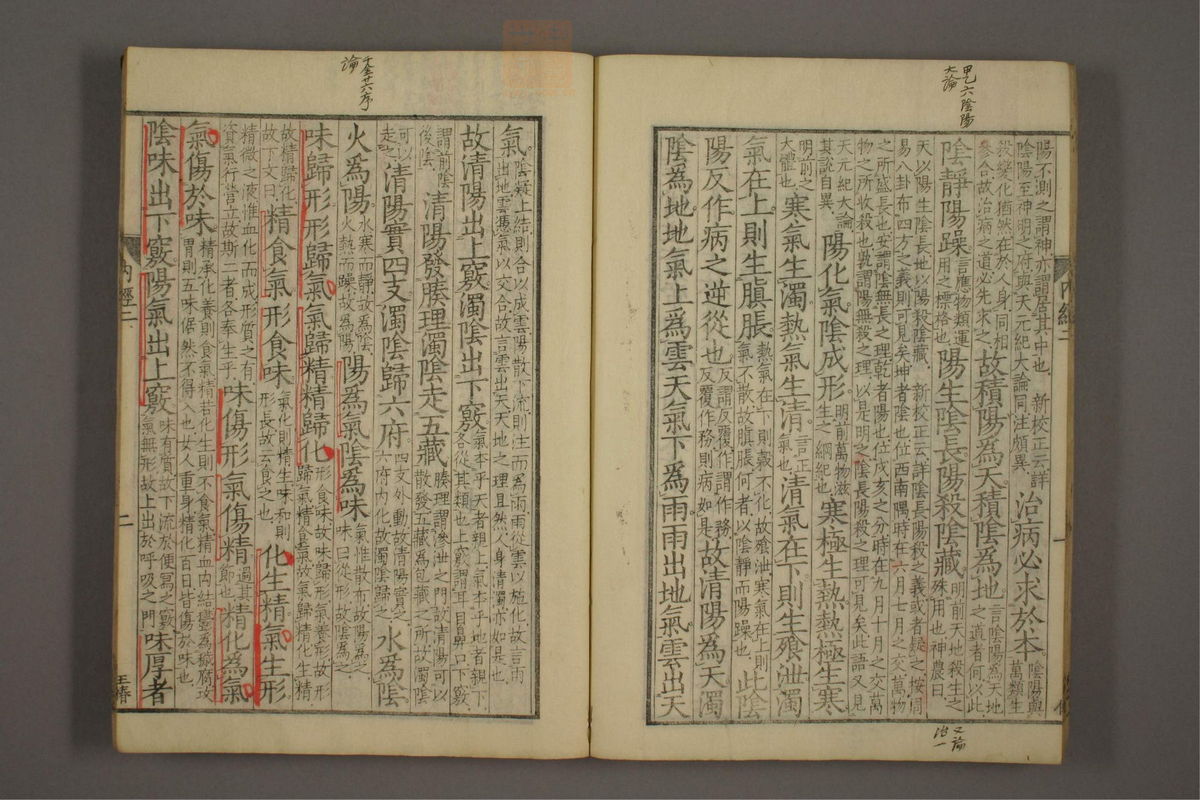 甲乙六陰陽
大論
陽不測之謂神亦謂居其中也　新校正云詳陰陽至神明之府與天元紀大論同注頗異治病必求於本陰陽與萬類生
殺變化猶然在於人身同相參合故治病之道必先求之故積陽爲天積陰爲地言陰陽爲天地之道者何以此
陰靜陽躁言應物類運用之標格也陽生陰長陽殺陰藏明前天地殺生之殊用也神農曰
天以陽生陰長地以陽殺陰藏　新校正云詳陰長陽殺之義或者疑之按周易八卦布四方之義則可見矣坤者陰也位西南隅時在六月七月之交萬物
之所盛長也安謂陰無長之理乾者陽也位戌亥之分時在九月十月之交萬物之所收殺也孰謂陽無殺之理以是明之陰長陽殺之理可見矣此語又見
天元紀大論其說自異陽化氣陰成形明前萬物滋生之綱紀也寒極生熱熱極生寒
明前之大體也寒氣生濁熱氣生清言正氣也清氣在下則生飧泄濁
氣在上則生䐜脹熱氣在下則穀不化故飧泄寒氣在上則氣不散故䐜脹何者以陰靜而陽躁也此陰
陽反作病之逆從也反謂反覆作謂作務反覆作務則病如是故清陽爲天濁
陰爲地地氣上爲雲天氣下爲雨雨出地氣雲出天
又論
治一
千金廿六序
論
氣陰凝上結則合以成雲陽散下流則注而爲雨雨從雲以施化故言雨出地雲憑氣以交合故言雲出天天地之理且然人身清濁亦如是也
故清陽出上竅濁陰出下竅氣本乎天者親上氣本乎地者親下各從其類也上竅謂耳目鼻口下竅
謂前陰後陰清陽發腠理濁陰走五藏腠理謂滲泄之門故清陽可以散發五藏爲包藏之所故濁陰
可以走之清陽實四支濁陰歸六府四支外動故清陽實之六府內化故濁陰歸之水爲陰
火爲陽水寒而靜故爲陰火熱而躁故爲陽陽爲氣陰爲味氣惟散布故陽爲之味曰從形故陰爲之
味歸形形歸氣氣歸精精歸化形食味故味歸形氣養形故形歸氣精食氣故氣歸精化生精
故精歸化故下文曰精食氣形食味氣化則精生味和則形長故云食之也化生精氣生形
精微之液惟血化而成形質之有資氣行營立故斯二者各奉生乎味傷形氣傷精過其節也精化爲氣
氣傷於味精承化養則食氣精若化生則不食氣精血內結鬱爲穢腐攻胃則五味倨然不得入也女人重身精化百日皆傷於味也
陰味出下竅陽氣出上竅味有質故下流於便寫之竅氣無形故上出於呼吸之門味厚者
內經二
二
王椿